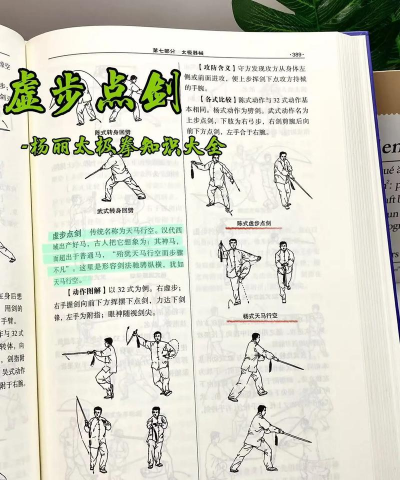 第七部分 太极器械
·389·
虚步点剑
-杨丽太极拳知识大全
陈式转身回劈
武式转身回劈
虚步点剑 传统名称为天马行空。汉代西
域出产好马，古人把它想象为：其神马，
不凡”。这里是形容剑法驰骋纵横，犹如
天马行空。
【动作图解】以32式为例。右虚步；
右手提剑向前下方挥摆下点剑，力达下剑
像，左手为附指；眼神随视剑尖。
【攻防含义】守方发现攻方从身体左
侧或前面进攻，便上步挥剑下点攻方持械
的手腕。
【各式比较】陈式动作与32式动作基
本相同。杨式动作为劈剑。武式动作名为
上步点剑，下肢为右弓步，右剑剪腕后向
前下方点剑，左手合于右腕。
陈式虚步点剑
杨式天马行空
在身后悬
周剑的
手臂。
作与32式
转体，向
，剑指附
吴式动作
附于右腕。